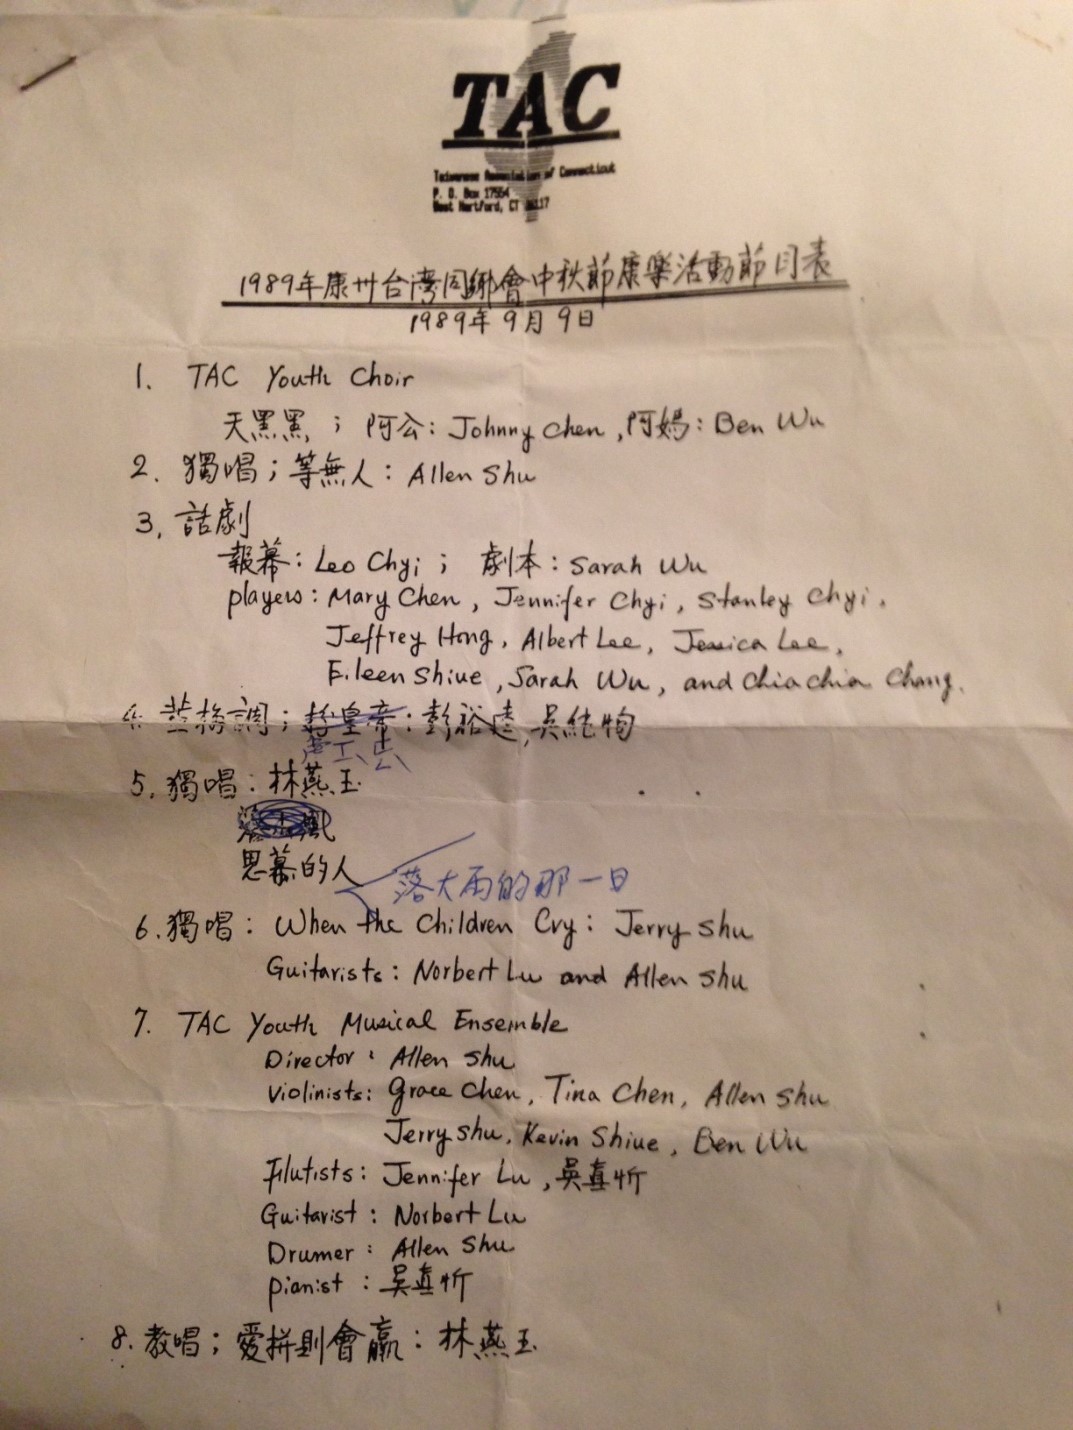 TAC
Taiwanese Association of Connecticut
P. O. Box 17554
West Hartford, CT 06117
1989年康州台灣同鄉會中秋節康樂活動節目表
1989年9月9日
1. TAC Youth Choir
天黑黑; 阿公: Johnny Chen, 阿媽: Ben Wu
2. 獨唱; 等無人: Allen Shu
3. 話劇
報幕: Leo Chyi; 劇本: Sarah Wu
players: Mary Chen, Jennifer Chyi, Stanley Chyi,
Jeffrey Hong, Albert Lee, Jessica Lee,
Eileen Shiue, Sarah Wu, and Chiachia Chang.
4. 調; 皇帝: 彭裕, 吳純
5. 獨唱: 林燕玉
思慕的人
落大雨的那一日
6. 獨唱: When the Children Cry: Jerry Shu
Guitarists: Norbert Lu and Allen Shu
7. TAC Youth Musical Ensemble
Director: Allen Shu
Violinists: Grace Chen, Tina Chen, Allen Shu
Jerry Shu, Kevin Shiue, Ben Wu
Flutists: Jennifer Lu, 吳真忻
Guitarist: Norbert Lu
Drumer: Allen Shu
Pianist: 吳真忻
8. 教唱; 愛拼則會贏: 林燕玉